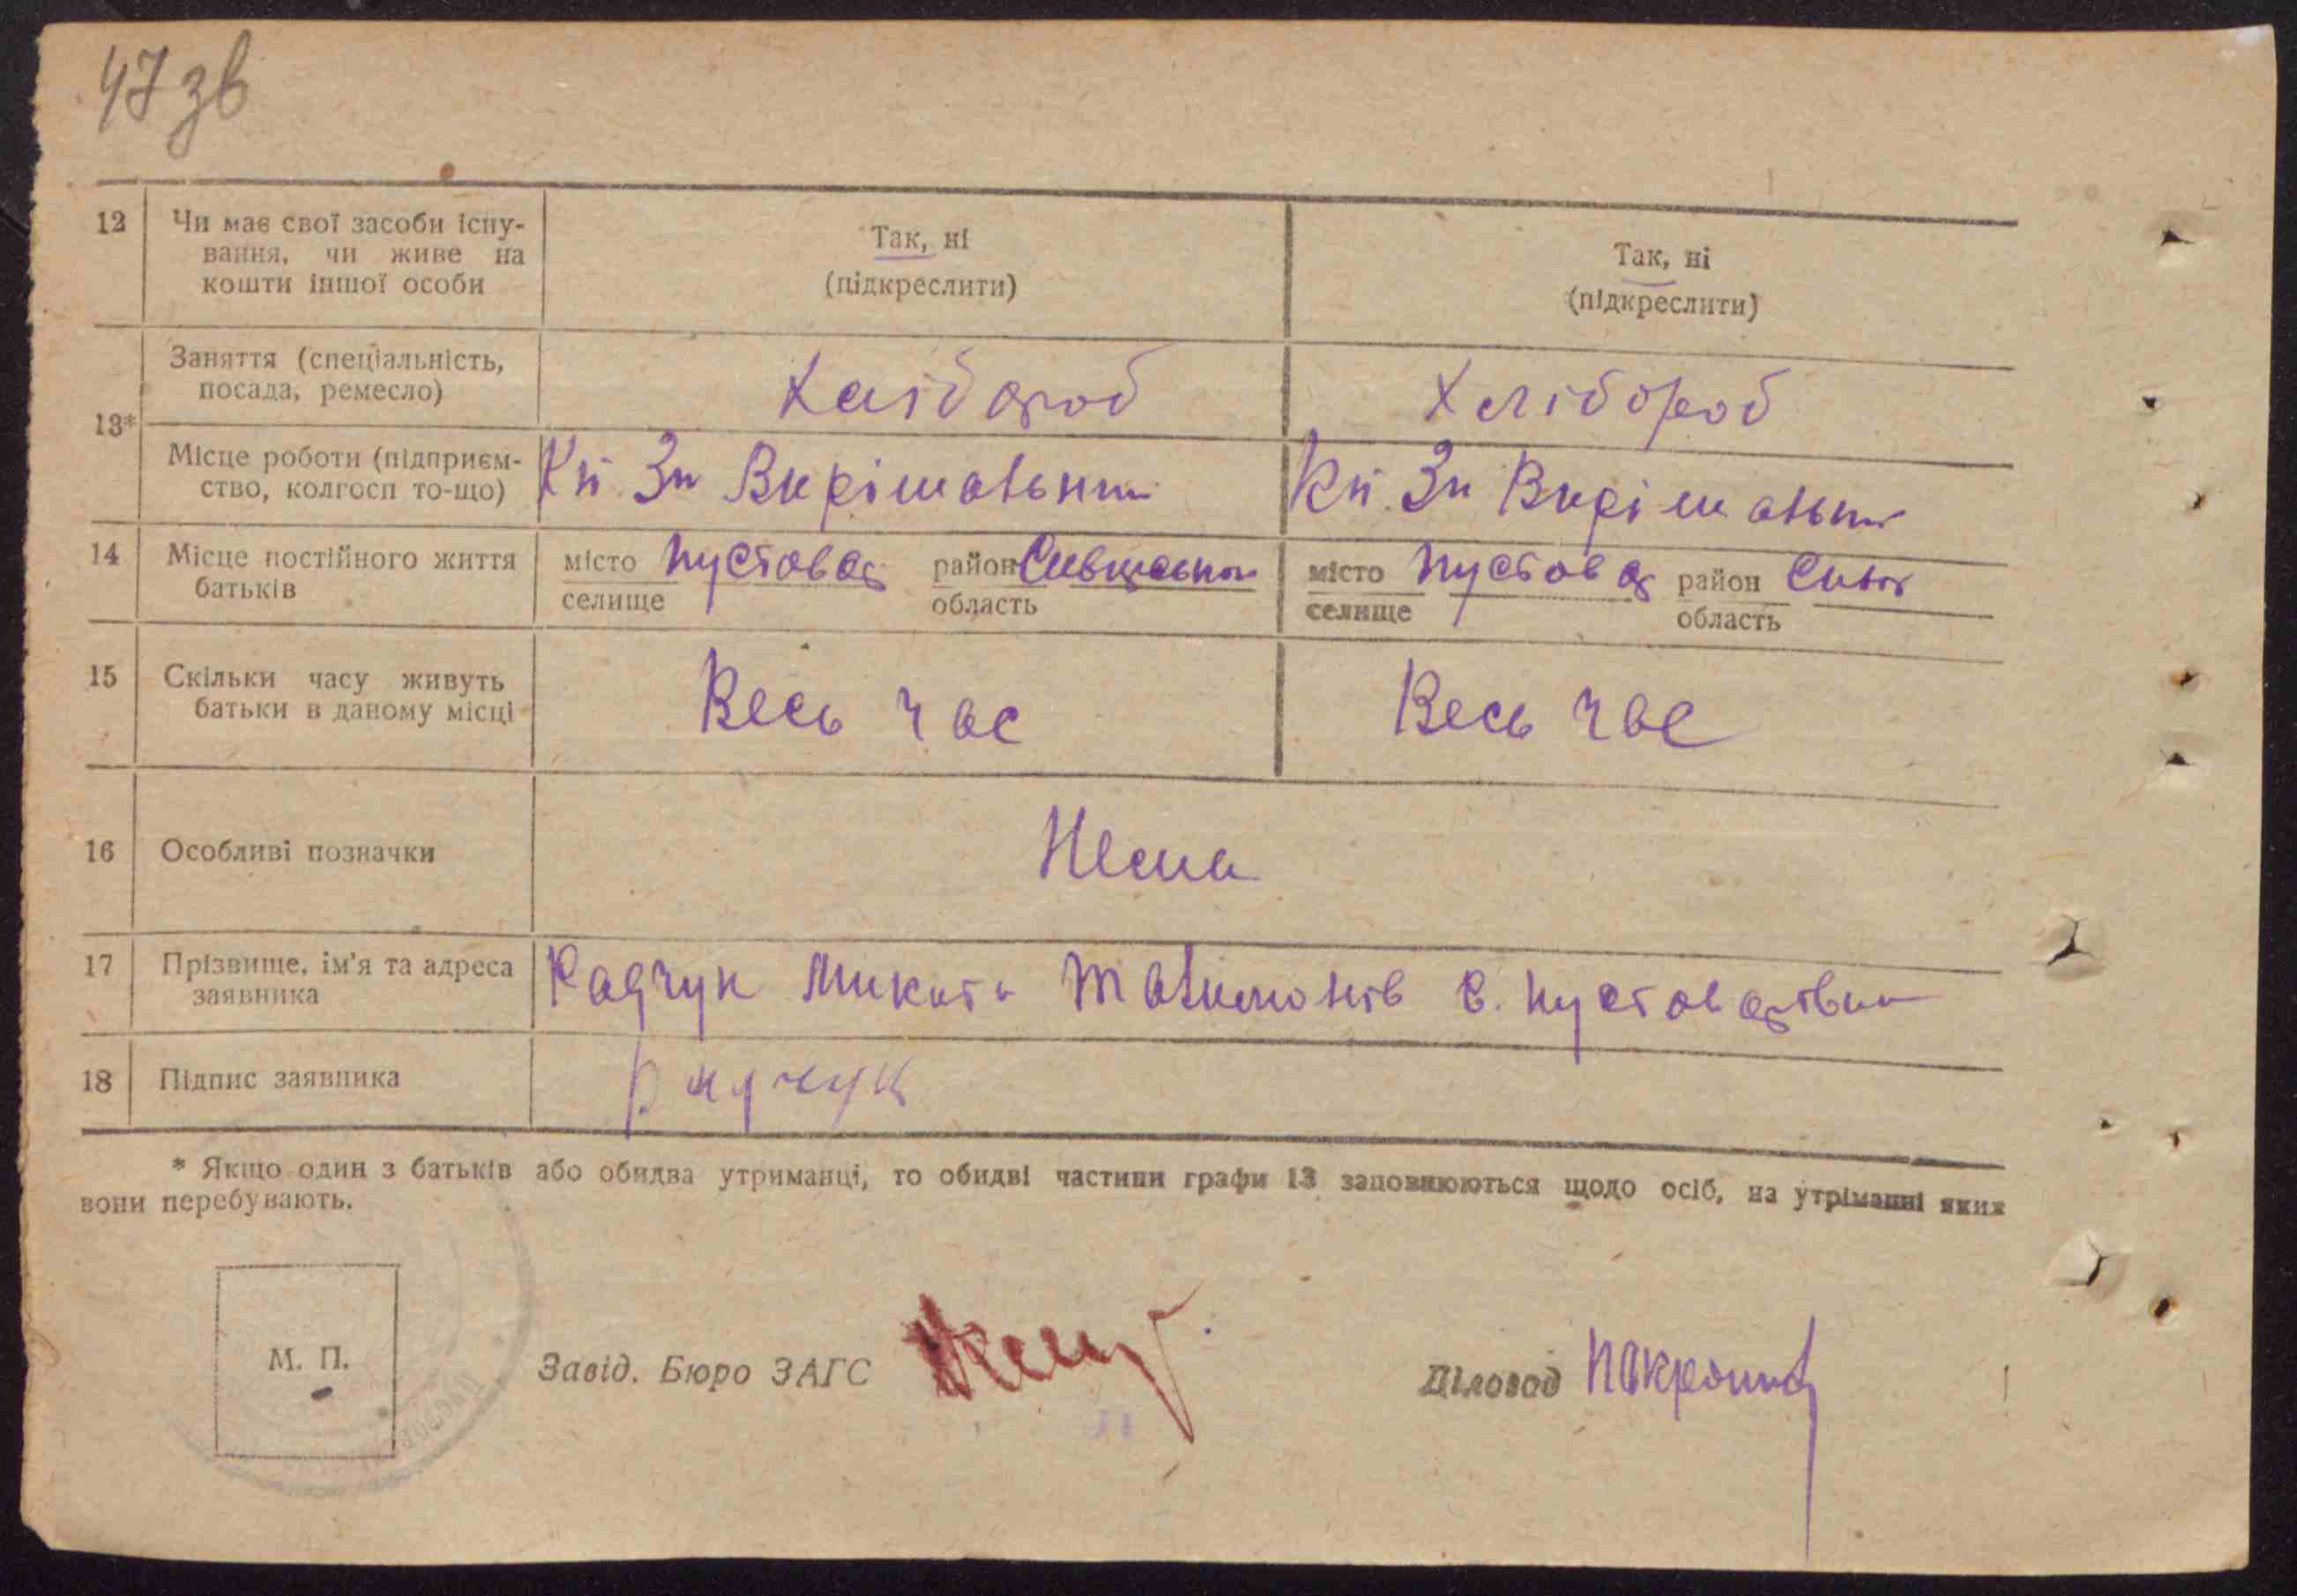 47 зв
12 Чи має свої засоби існу-
вання, чи живе на
кошти іншої особи
Так, ні
(підкреслити)
Так, ні
(підкреслити)
13*
Заняття (спеціальність,
посада, ремесло)
Хлібороб
Хлібороб
Місце роботи (підприєм-
ство, колгосп то-що)
14 Місце постійного життя
батьків
місто Пустовар район
селище область
місто Пустовар район
селище область
15 Скільки часу живуть
батьки в даному місці
Весь час
Весь час
16 Особливі позначки
Нема
17 Прізвище, ім'я та адреса
заявника
Радчук Микита с.
18 Підпис заявника
Радчук
* Якщо один з батьків або обидва утриманці, то обидві частини графи 13 заповнюються щодо осіб, на утріманні яких
вони перебувають.
М. П.
Завід. Бюро ЗАГС
Діловод